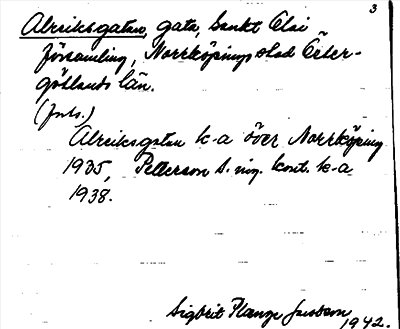 3
Alreiksgatan, gata, Sankt Olai
församling, Norrköpings stad Öster-
götlands län.
Alreiksgatan k-a över Norrköping
1935, Petterson s. ing. kont. k-a
1938.
Sigbrit Plænge Jacobson
1942.